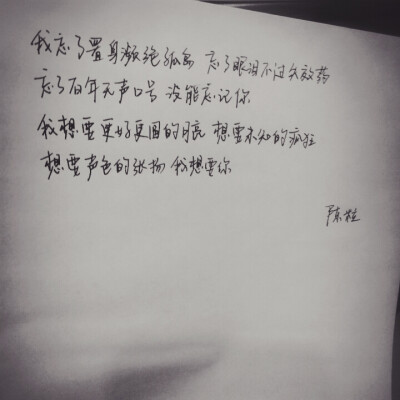 我忘了置身濒绝孤岛 忘了眼泪不过失效药
忘了百年无声口号 没能忘记你
我想要更好更圆的月亮 想要未知的疯狂
想要声色的张扬 我想要你
陈粒